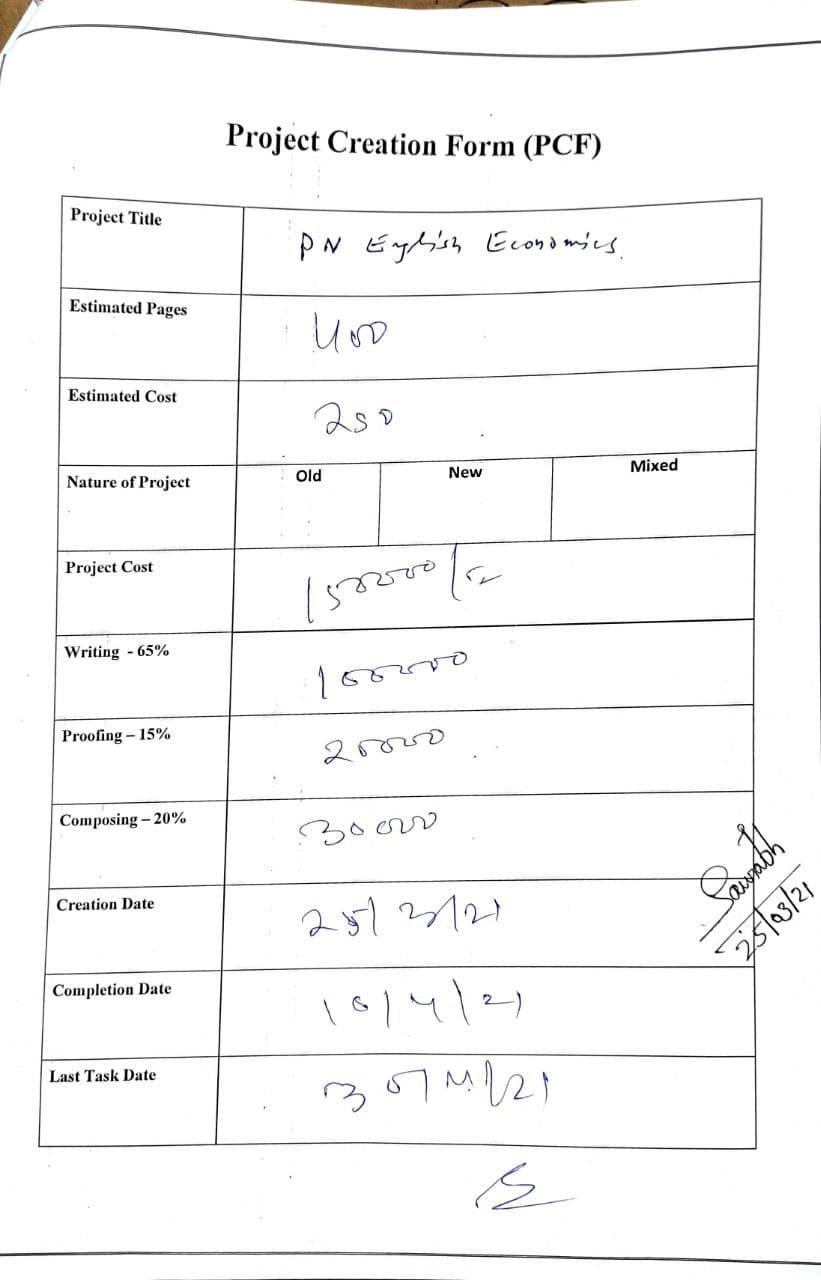 Project Creation Form (PCF)
Project Title PN English Economics.
Estimated Pages 400
Estimated Cost 250
Nature of Project Old New Mixed
Project Cost 150000/-
Writing - 65% 100000
Proofing – 15% 20000
Composing – 20% 30000
Creation Date 25/3/21
Saurabh
25/03/21
Completion Date 10/4/21
Last Task Date 30/4/21